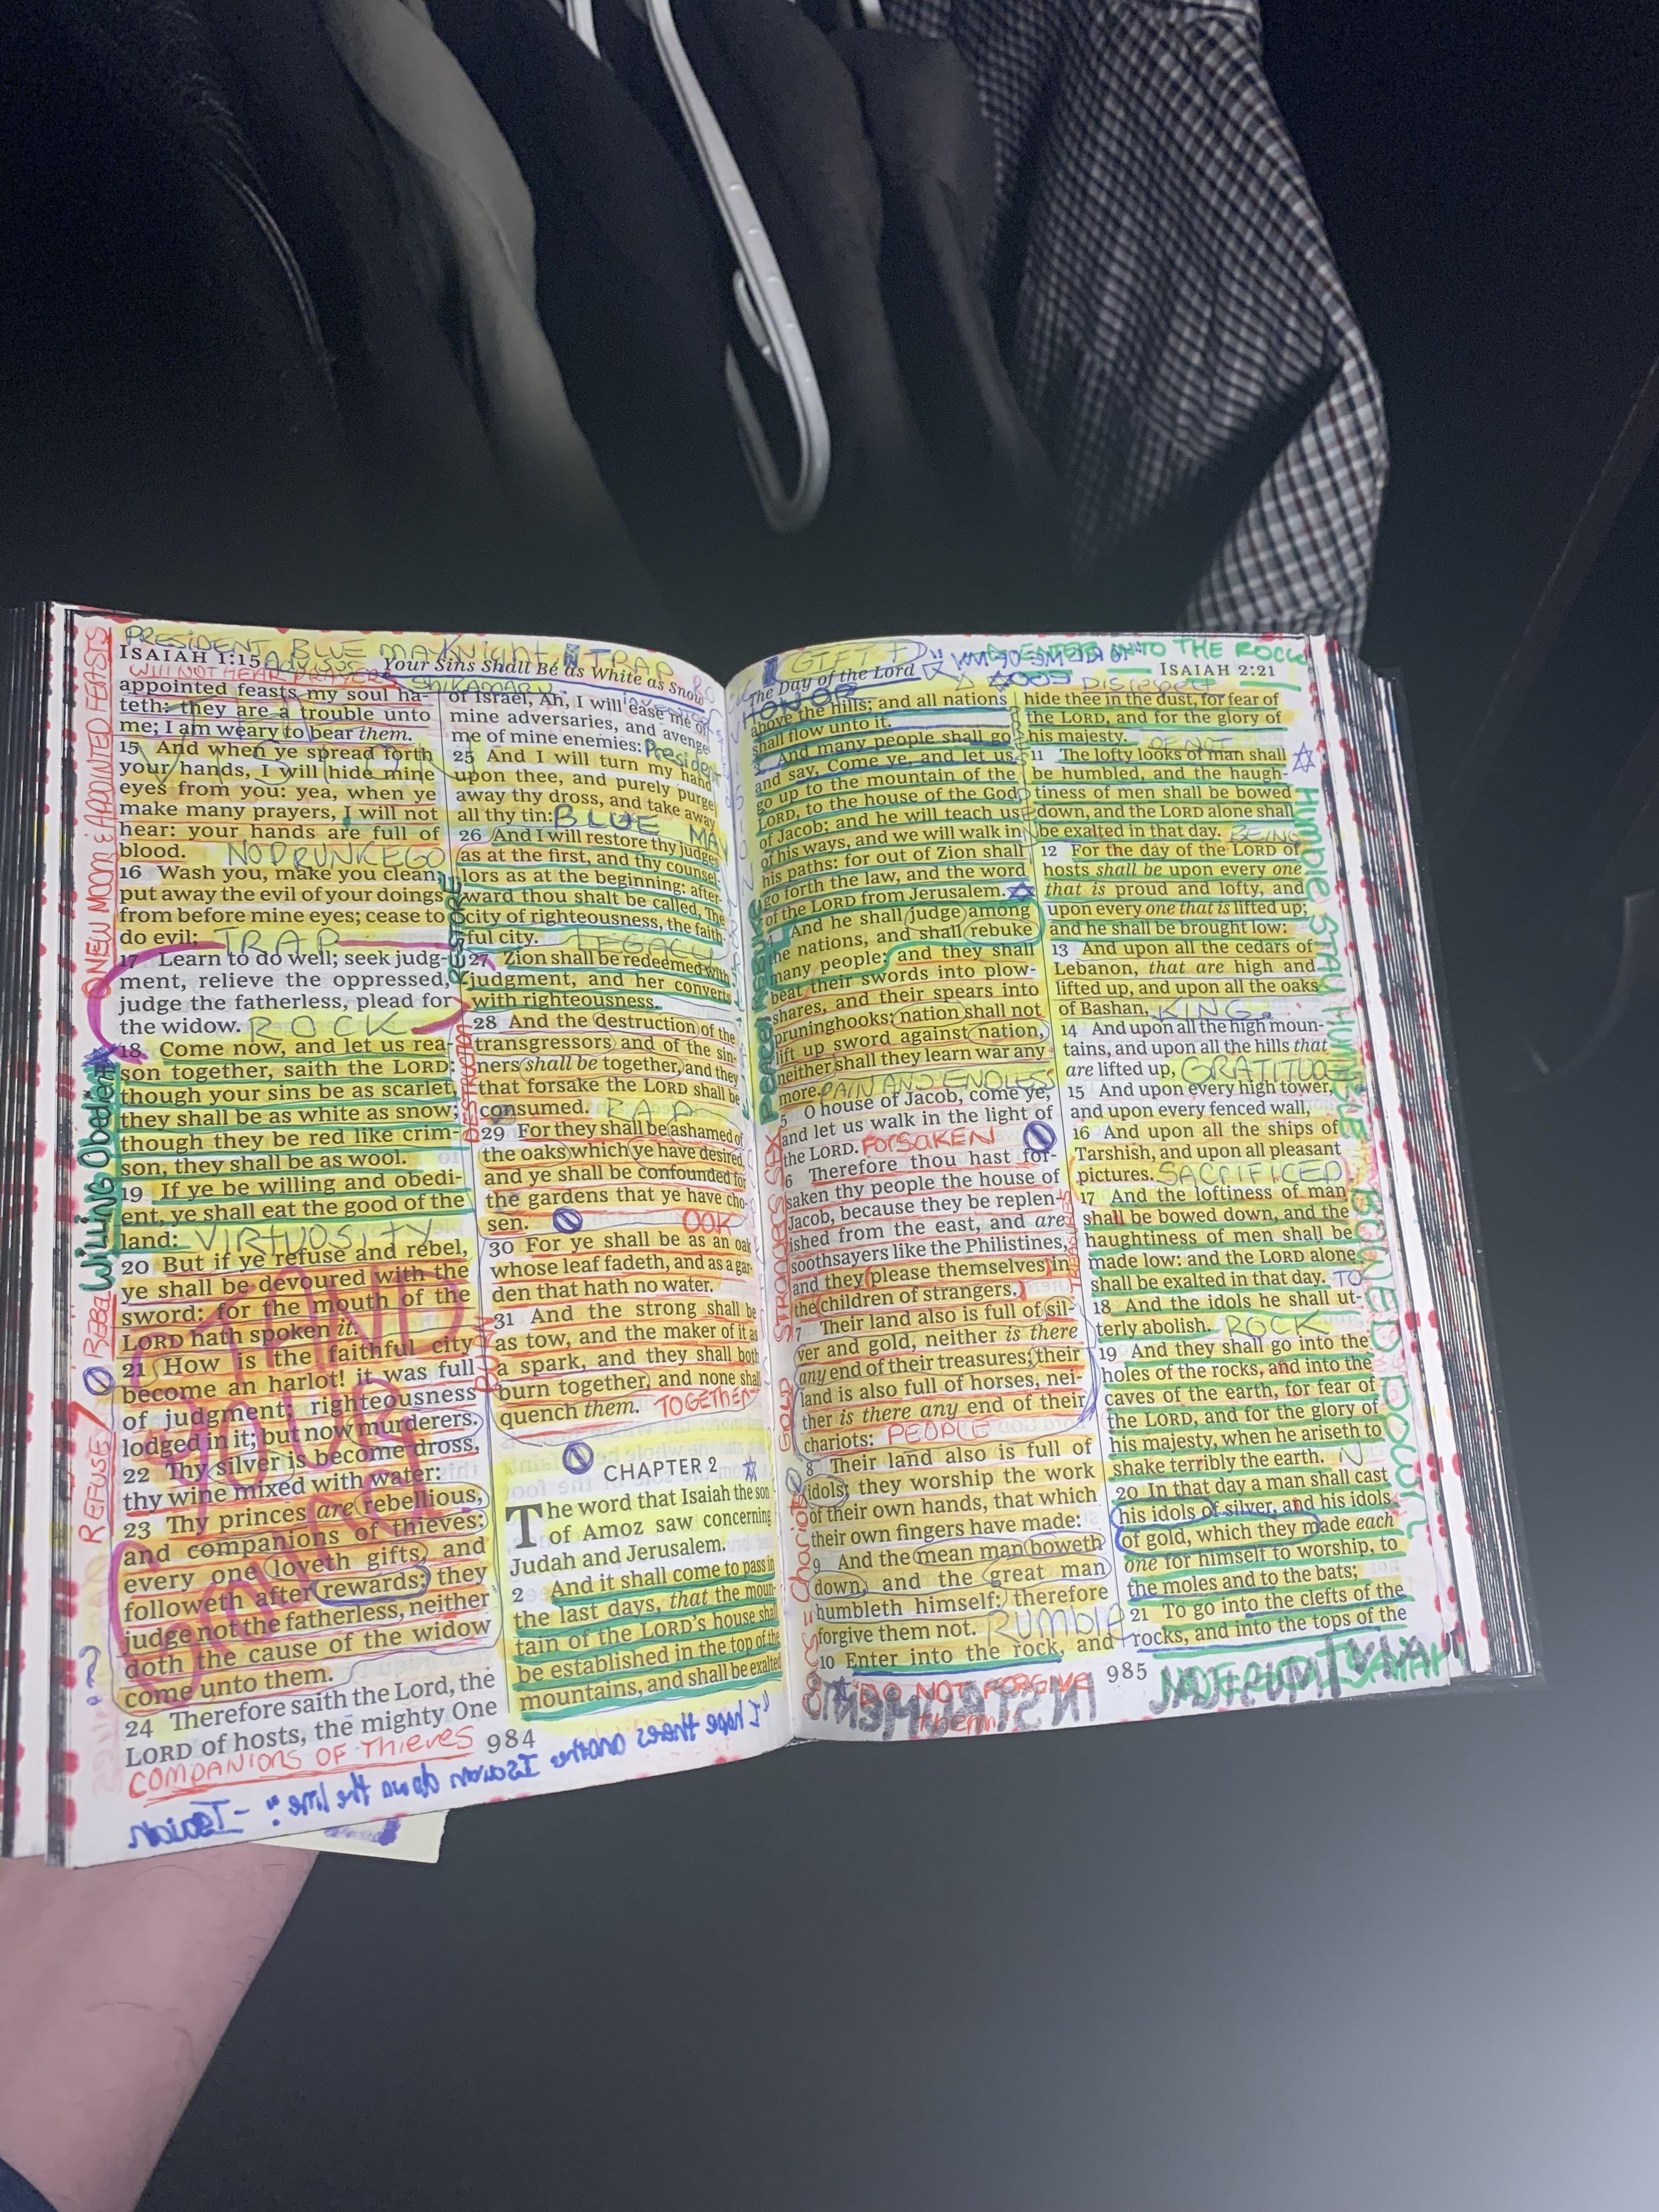 PRESIDENT BLUE MAN Knight TRAP
ISAIAH 1:15
Your Sins Shall Be as White as Snow
WILL NOT HEAR PRAYERS
NEW MOON & APPOINTED FEASTS
appointed feasts my soul ha-
teth: they are a trouble unto
me; I am weary to bear them.
15 And when ye spread forth
your hands, I will hide mine
eyes from you: yea, when ye
make many prayers, I will not
hear: your hands are full of
blood.
NO DRUNK EGO
16 Wash you, make you clean;
put away the evil of your doings
from before mine eyes; cease to
do evil;
TRAP
17 Learn to do well; seek judg-
ment, relieve the oppressed,
judge the fatherless, plead for
the widow.
ROCK
18 Come now, and let us rea-
son together, saith the LORD:
though your sins be as scarlet,
they shall be as white as snow;
though they be red like crim-
son, they shall be as wool.
19 If ye be willing and obedi-
ent, ye shall eat the good of the
land:
VIRTUOSITY
Willing Obedient
20 But if ye refuse and rebel,
ye shall be devoured with the
sword: for the mouth of the
LORD hath spoken it.
21 How is the faithful city
become an harlot! it was full
of judgment; righteousness
lodged in it; but now murderers.
22 Thy silver is become dross,
thy wine mixed with water:
23 Thy princes are rebellious,
and companions of thieves:
every one loveth gifts, and
followeth after rewards: they
judge not the fatherless, neither
doth the cause of the widow
come unto them.
REFUSE
24 Therefore saith the Lord, the
LORD of hosts, the mighty One
COMPANIONS OF THIEVES
984
of Israel, Ah, I will ease me of
mine adversaries, and avenge
me of mine enemies:
President
25 And I will turn my hand
upon thee, and purely purge
away thy dross, and take away
all thy tin:
BLUE MAN
26 And I will restore thy judges
as at the first, and thy counsel-
lors as at the beginning: after-
ward thou shalt be called, The
city of righteousness, the faith-
ful city.
LEGACY
RESTORE
27 Zion shall be redeemed with
judgment, and her converts
with righteousness.
28 And the destruction of the
transgressors and of the sin-
ners shall be together, and they
that forsake the LORD shall be
consumed.
RAP
DESTRUCTION
29 For they shall be ashamed of
the oaks which ye have desired,
and ye shall be confounded for
the gardens that ye have cho-
sen.
30 For ye shall be as an oak
whose leaf fadeth, and as a gar-
den that hath no water.
31 And the strong shall be
as tow, and the maker of it as
a spark, and they shall both
burn together, and none shall
quench them.
TOGETHER
BURN
CHAPTER 2
The word that Isaiah the son
of Amoz saw concerning
Judah and Jerusalem.
2 And it shall come to pass in
the last days, that the moun-
tain of the LORD'S house shall
be established in the top of the
mountains, and shall be exalted
"I hope theres another Isaiah down the line". - Isaiah
GIFT
ENTER INTO THE ROCK
The Day of the Lord
ISAIAH 2:21
HONOR
Disrespect
above the hills; and all nations
shall flow unto it.
3 And many people shall go
and say, Come ye, and let us
go up to the mountain of the
LORD, to the house of the God
of Jacob; and he will teach us
of his ways, and we will walk in
his paths: for out of Zion shall
go forth the law, and the word
of the LORD from Jerusalem.
4 And he shall judge among
the nations, and shall rebuke
many people: and they shall
beat their swords into plow-
shares, and their spears into
pruninghooks: nation shall not
lift up sword against nation,
neither shall they learn war any
more.
PAIN AND ENDLESS
5 O house of Jacob, come ye,
and let us walk in the light of
the LORD.
FORSAKEN
6 Therefore thou hast for-
saken thy people the house of
Jacob, because they be replen-
ished from the east, and are
soothsayers like the Philistines,
and they please themselves in
the children of strangers.
7 Their land also is full of sil-
ver and gold, neither is there
any end of their treasures; their
land is also full of horses, nei-
ther is there any end of their
chariots:
PEOPLE
GOLD
8 Their land also is full of
idols; they worship the work
of their own hands, that which
their own fingers have made:
9 And the mean man boweth
down, and the great man
humbleth himself: therefore
forgive them not.
RUMBLE
10 Enter into the rock, and
Cars = Chariots
"DO NOT FORGIVE
them"
985
hide thee in the dust, for fear of
the LORD, and for the glory of
his majesty.
11 The lofty looks of man shall
be humbled, and the haugh-
tiness of men shall be bowed
down, and the LORD alone shall
be exalted in that day.
BEING
12 For the day of the LORD of
hosts shall be upon every one
that is proud and lofty, and
upon every one that is lifted up;
and he shall be brought low:
13 And upon all the cedars of
Lebanon, that are high and
lifted up, and upon all the oaks
of Bashan,
KING
14 And upon all the high moun-
tains, and upon all the hills that
are lifted up,
GRATITUDE
15 And upon every high tower,
and upon every fenced wall,
16 And upon all the ships of
Tarshish, and upon all pleasant
pictures.
SACRIFICED
17 And the loftiness of man
shall be bowed down, and the
haughtiness of men shall be
made low: and the LORD alone
shall be exalted in that day.
TO
18 And the idols he shall ut-
terly abolish.
ROCK
19 And they shall go into the
holes of the rocks, and into the
caves of the earth, for fear of
the LORD, and for the glory of
his majesty, when he ariseth to
shake terribly the earth.
N
20 In that day a man shall cast
his idols of silver, and his idols
of gold, which they made each
one for himself to worship, to
the moles and to the bats;
21 To go into the clefts of the
rocks, and into the tops of the
Humble STAY HUMBLE
BOWED DOWN